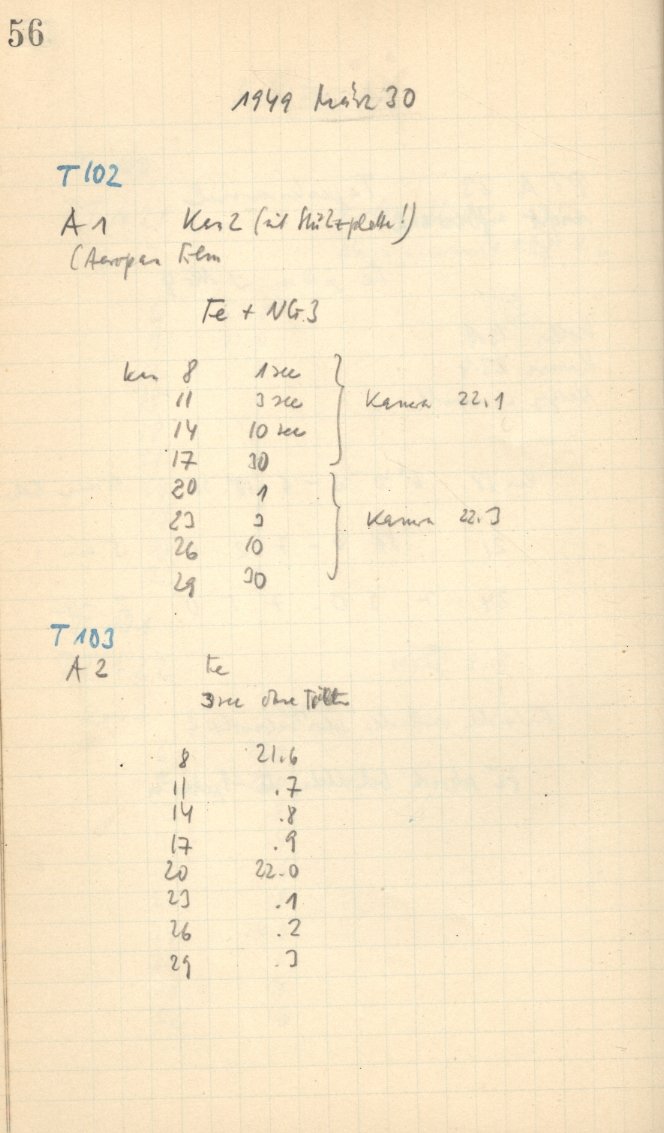 56
1949 März 30
T 102
A 1 Kas 2 (mit Stützplatte!)
(Aeropan Film
Fe + NG3
8 1 sec
11 3 sec
14 10 sec
17 30
Kamera 22.1
20 1
23 3
26 10
29 30
Kamera 22.3
T 103
A 2 Fe
3 sec ohne Filter
8 21.6
11 .7
14 .8
17 .9
20 22.0
23 .1
26 .2
29 .3